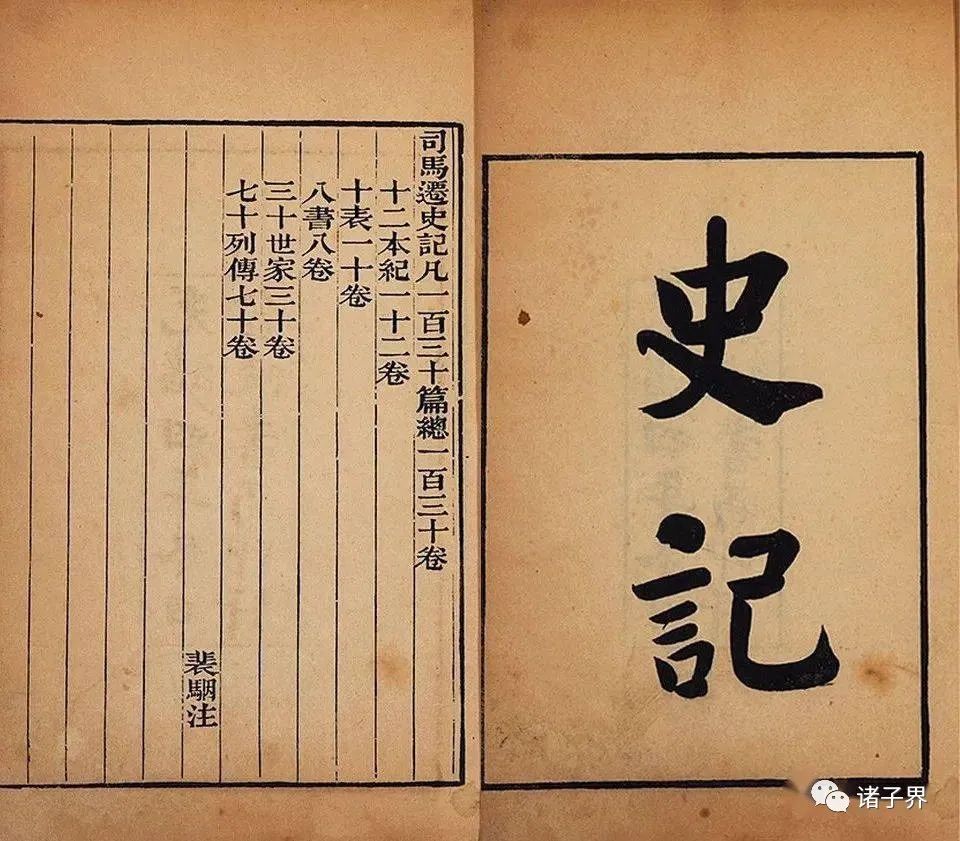 史記
司馬遷史記凡一百三十篇總一百三十卷
十二本紀一十二卷
十表一十卷
八書八卷
三十世家三十卷
七十列傳七十卷
裴駰注
诸子界